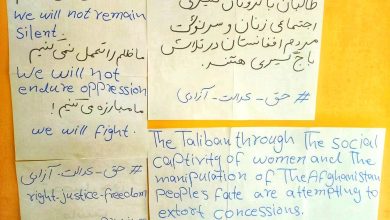 we will not remain
silent.
ما ظلم را تحمل نمی کنیم
we will not
endure oppression
ما مبارزه می کنیم!
we will fight.
# حق - عدالت - آزادی
right-justice-freedom
طالبان با گروگان گیری
اجتماعی زنان و سرنوشت
مردم افغانستان در تلاش
باج گیری هستند.
# حق - عدالت - آزادی
The Taliban through The social
captivity of women and The
manipulation of The Afghanistan
Peoples fate are attempting to
extort concessions.